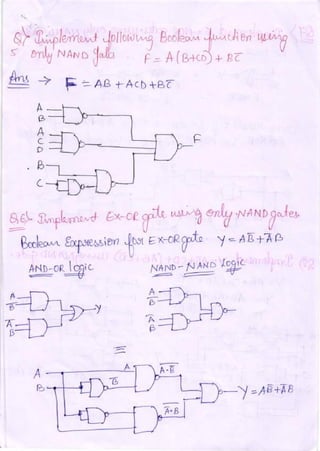 Q/ Implement following Boolean function using
5 only NAND gate
F = A(B+CD) + BC̅
Ans → F = AB + ACD + BC̅
A
B
A
C
D
F
B
C
Q.6/- Implement Ex-OR gate using only NAND gates
Boolean Expression for Ex-OR gate y = AB̅ + A̅B
AND-OR logic NAND-NAND logic
A
B̅
y
A̅
B
A
B̅
A̅
B
=
A
B
A
B̅
A·B̅
A̅·B
y = AB̅ + A̅B